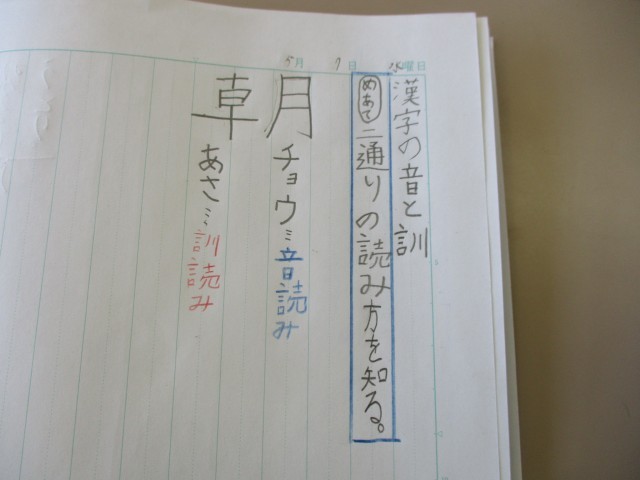 月 日 水曜日
漢字の音と訓
めあて 二通りの読み方を知る。
朝
チョウ…音読み
あさ…訓読み